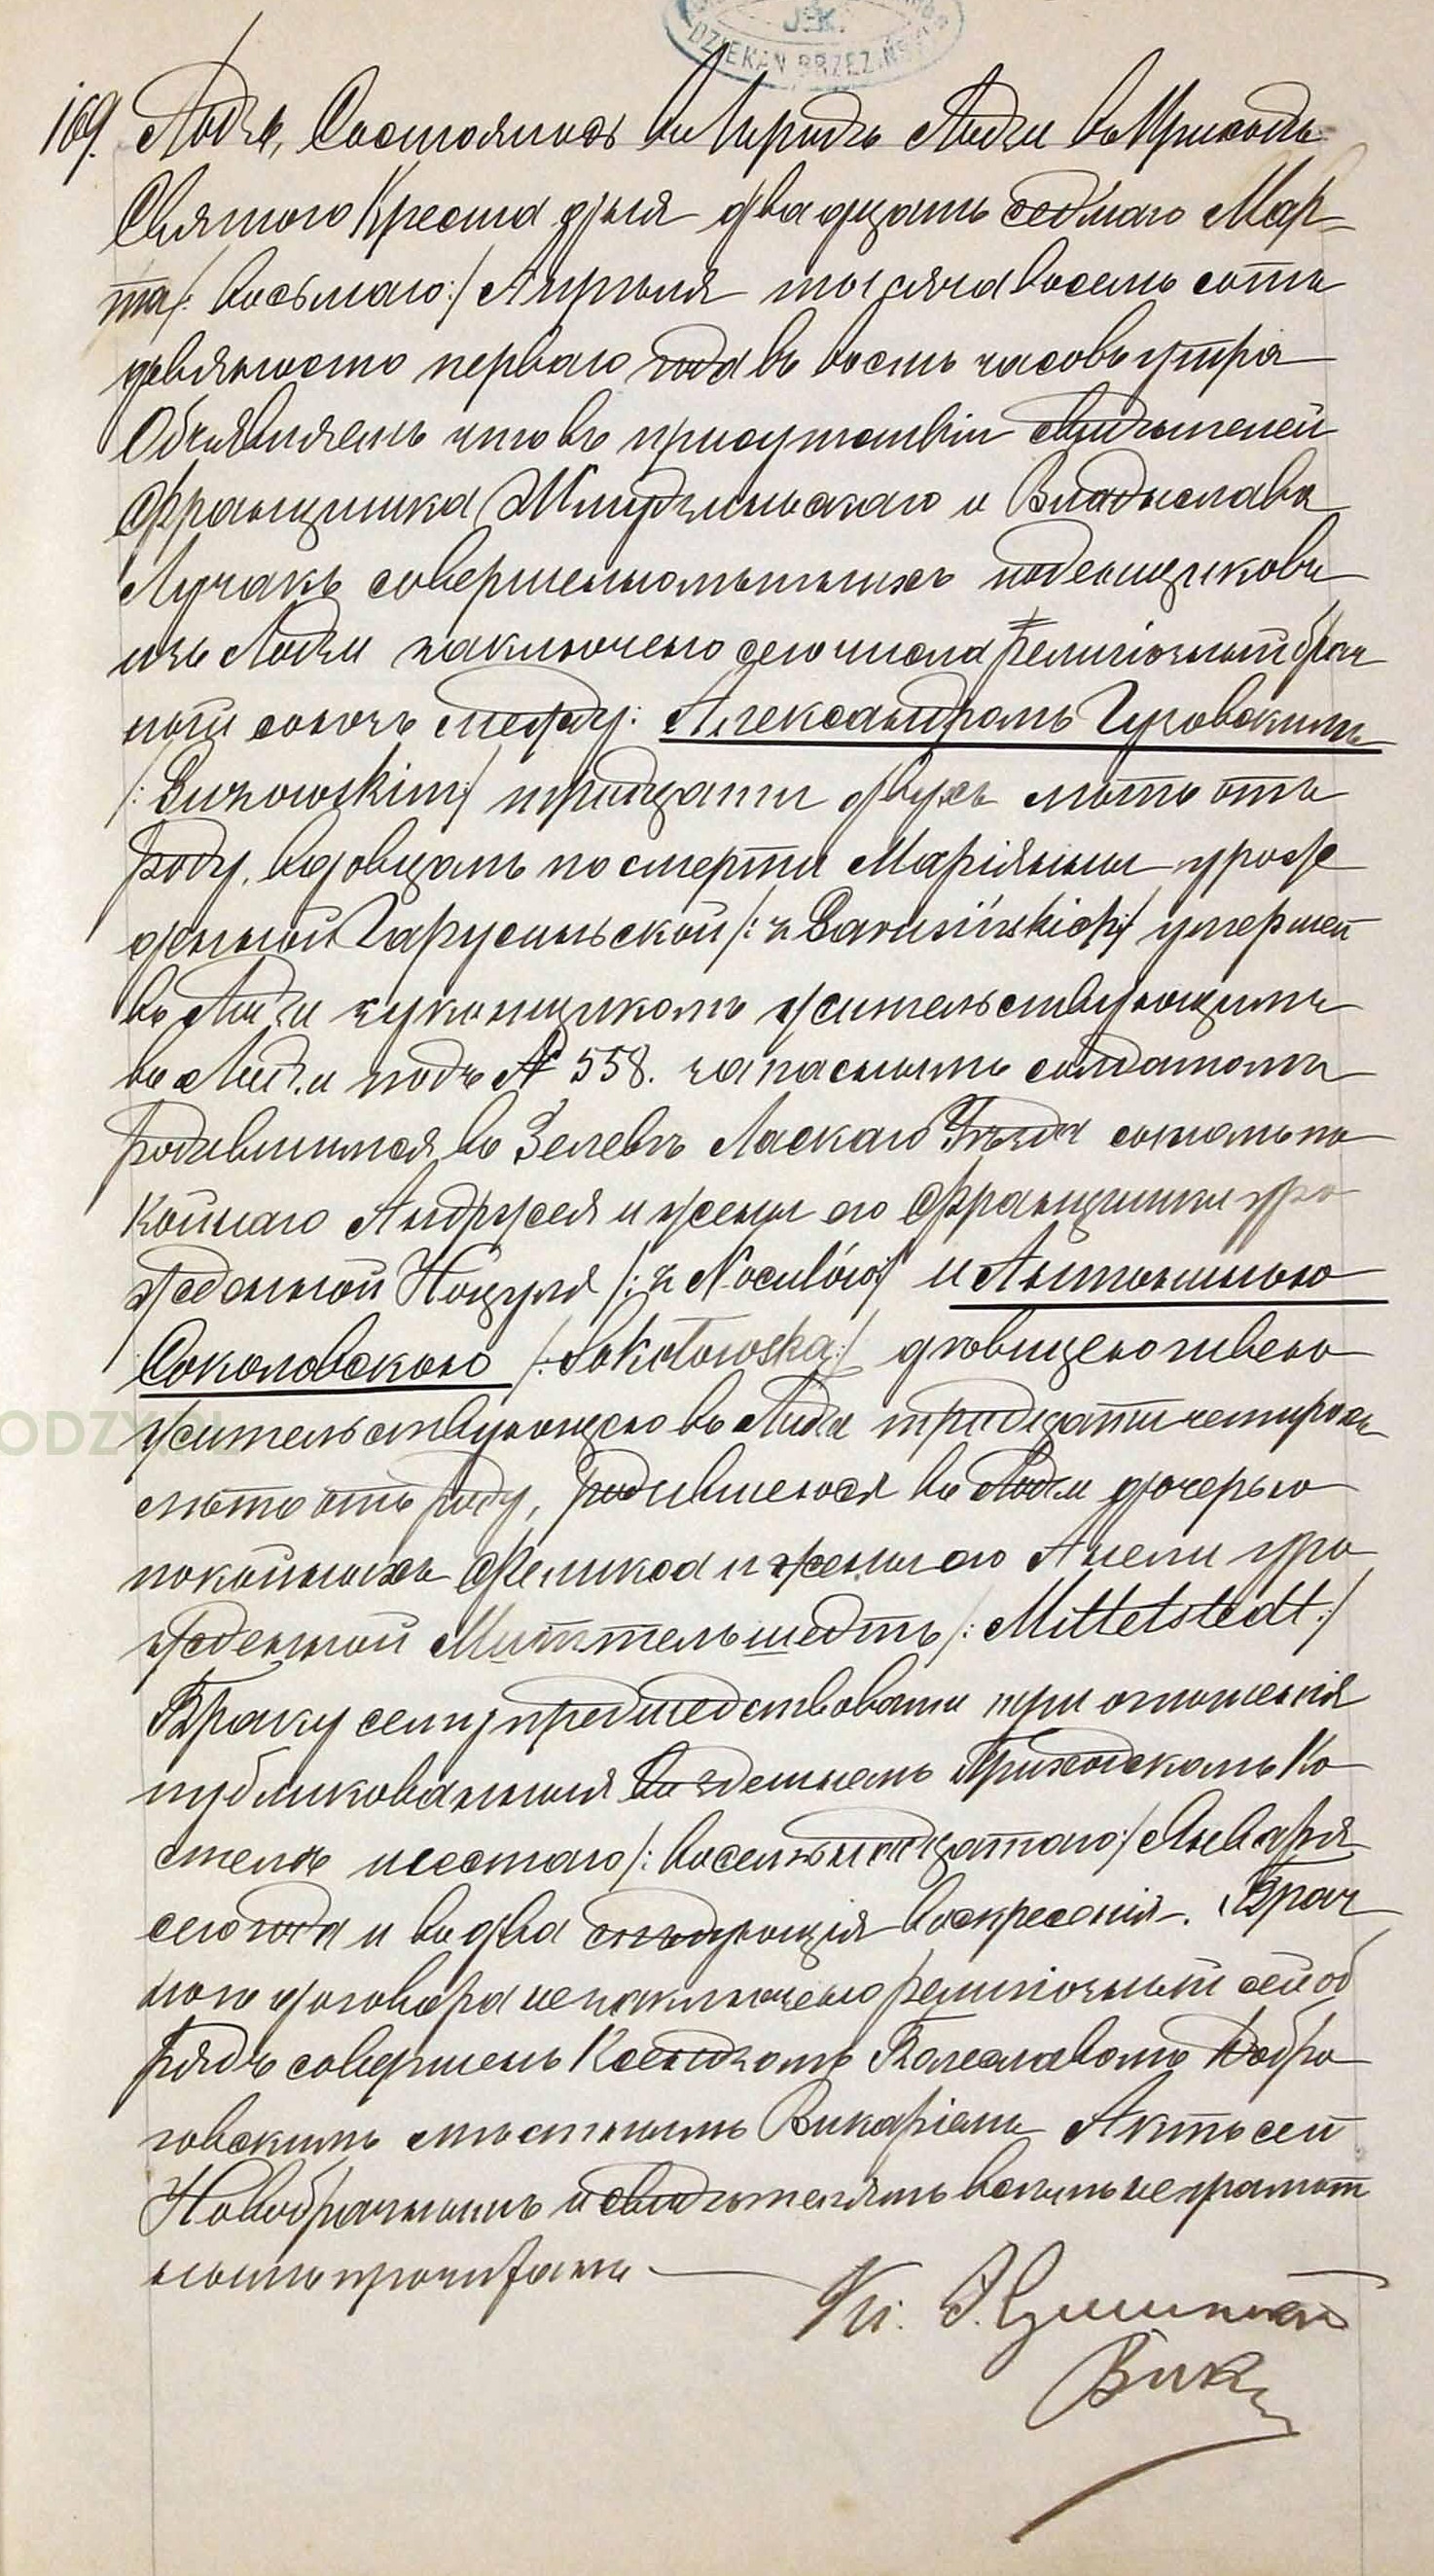 169. Лодзь, Состоялось въ Городѣ Лодзи въ Приходѣ
Святого Креста дня двадцать седьмаго Мар-
та /: восьмаго :/ Апрѣля тысяча восемь сотъ
девяносто перваго года въ восемь часовъ утра
Объявляемъ что въ присутствіи свидѣтелей
Францишка и Владыслава
Лучакъ совершеннолѣтныхъ поденщиковъ
изъ Лодзи заключено сего числа религіозный брач
ный союзъ между: Александромъ Гузовскимъ
/: Guzowskim :/ тридцати двухъ лѣтъ отъ
роду, вдовцемъ по смерти Маріянны урожд
денной Гарусинской /: z Garusińskich :/ умершей
въ Лодзи сукенщикомъ жительствующимъ
въ Лодзи подъ № 558. запаснымъ солдатомъ
родившимся въ Зеловѣ Ласкаго Уѣзда сыномъ по
койнаго Андржея и жены его Францишки уро
жденной Ноцуля /: z Noculów :/ и Антониною
Соколовскою /: Sokołowską :/ дѣвицею швею
жительствующею въ Лодзи тридцати четырехъ
лѣтъ отъ роду, родившеюся въ Лодзи дочерью
покойныхъ Феликса и жены его Анели уро
жденной Миттельштедтъ /: Mittelstedt :/
Браку сему предшествовали три оглашенія
публикованныя въ здешнемъ Приходскомъ Ко
стелѣ шестаго /: восемьнадцатаго :/ Января
сего года и въ два слѣдующія воскресенія. Брач
ного договора не заключено религіозный сей об
рядъ совершенъ Ксендзомъ Болеславомъ Добро
говскимъ мѣстнымъ Викаріемъ Актъ сей
Новобрачнымъ и свидѣтелямъ всѣмъ неграмот
нымъ прочитанъ
Кс.
Вик.